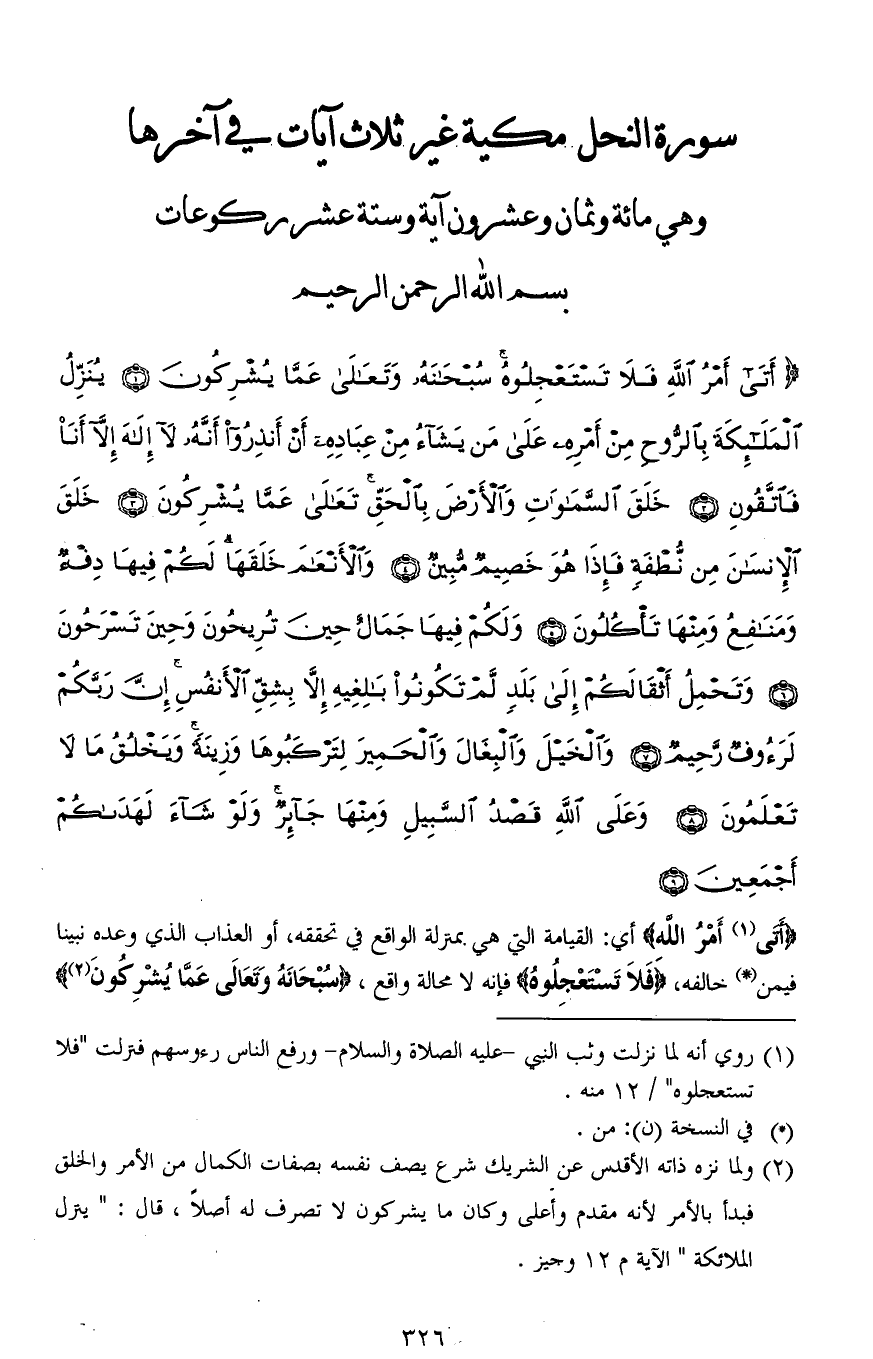 سورة النحل مكية غير ثلاث آيات في آخرها
وهي مائة وثمان وعشرون آية وستة عشر ركوعات
بسم الله الرحمن الرحيم
﴿ أَتَىٰٓ أَمْرُ ٱللَّهِ فَلَا تَسْتَعْجِلُوهُ ۚ سُبْحَٰنَهُۥ وَتَعَٰلَىٰ عَمَّا يُشْرِكُونَ ۝١ يُنَزِّلُ
ٱلْمَلَٰٓئِكَةَ بِٱلرُّوحِ مِنْ أَمْرِهِۦ عَلَىٰ مَن يَشَآءُ مِنْ عِبَادِهِۦٓ أَنْ أَنذِرُوٓا۟ أَنَّهُۥ لَآ إِلَٰهَ إِلَّآ أَنَا۠
فَٱتَّقُونِ ۝٢ خَلَقَ ٱلسَّمَٰوَٰتِ وَٱلْأَرْضَ بِٱلْحَقِّ ۚ تَعَٰلَىٰ عَمَّا يُشْرِكُونَ ۝٣ خَلَقَ
ٱلْإِنسَٰنَ مِن نُّطْفَةٍ فَإِذَا هُوَ خَصِيمٌ مُّبِينٌ ۝٤ وَٱلْأَنْعَٰمَ خَلَقَهَا ۗ لَكُمْ فِيهَا دِفْءٌ
وَمَنَٰفِعُ وَمِنْهَا تَأْكُلُونَ ۝٥ وَلَكُمْ فِيهَا جَمَالٌ حِينَ تُرِيحُونَ وَحِينَ تَسْرَحُونَ
۝٦ وَتَحْمِلُ أَثْقَالَكُمْ إِلَىٰ بَلَدٍ لَّمْ تَكُونُوا۟ بَٰلِغِيهِ إِلَّا بِشِقِّ ٱلْأَنفُسِ ۚ إِنَّ رَبَّكُمْ
لَرَءُوفٌ رَّحِيمٌ ۝٧ وَٱلْخَيْلَ وَٱلْبِغَالَ وَٱلْحَمِيرَ لِتَرْكَبُوهَا وَزِينَةً ۚ وَيَخْلُقُ مَا لَا
تَعْلَمُونَ ۝٨ وَعَلَى ٱللَّهِ قَصْدُ ٱلسَّبِيلِ وَمِنْهَا جَآئِرٌ ۚ وَلَوْ شَآءَ لَهَدَىٰكُمْ
أَجْمَعِينَ ۝٩
﴿أَتَى(١) أَمْرُ اللَّه﴾ أي: القيامة التي هي بمنزلة الواقع في تحققه، أو العذاب الذي وعده نبينا
فيمن(*) خالفه، ﴿فَلاَ تَسْتَعْجِلُوهُ﴾ فإنه لا محالة واقع ، ﴿سُبْحَانَهُ وَتَعَالَى عَمَّا يُشْرِكُونَ(٢)﴾
(١) روي أنه لما نزلت وثب النبي -عليه الصلاة والسلام- ورفع الناس رءوسهم فنزلت "فلا
تستعجلوه" / ١٢ منه .
(*) في النسخة (ن): من .
(٢) ولما نزه ذاته الأقدس عن الشريك شرع يصف نفسه بصفات الكمال من الأمر والخلق
فبدأ بالأمر لأنه مقدم وأعلى وكان ما يشركون لا تصرف له أصلاً ، قال : " ينزل
الملائكة " الآية م ١٢ وجيز .
٣٢٦